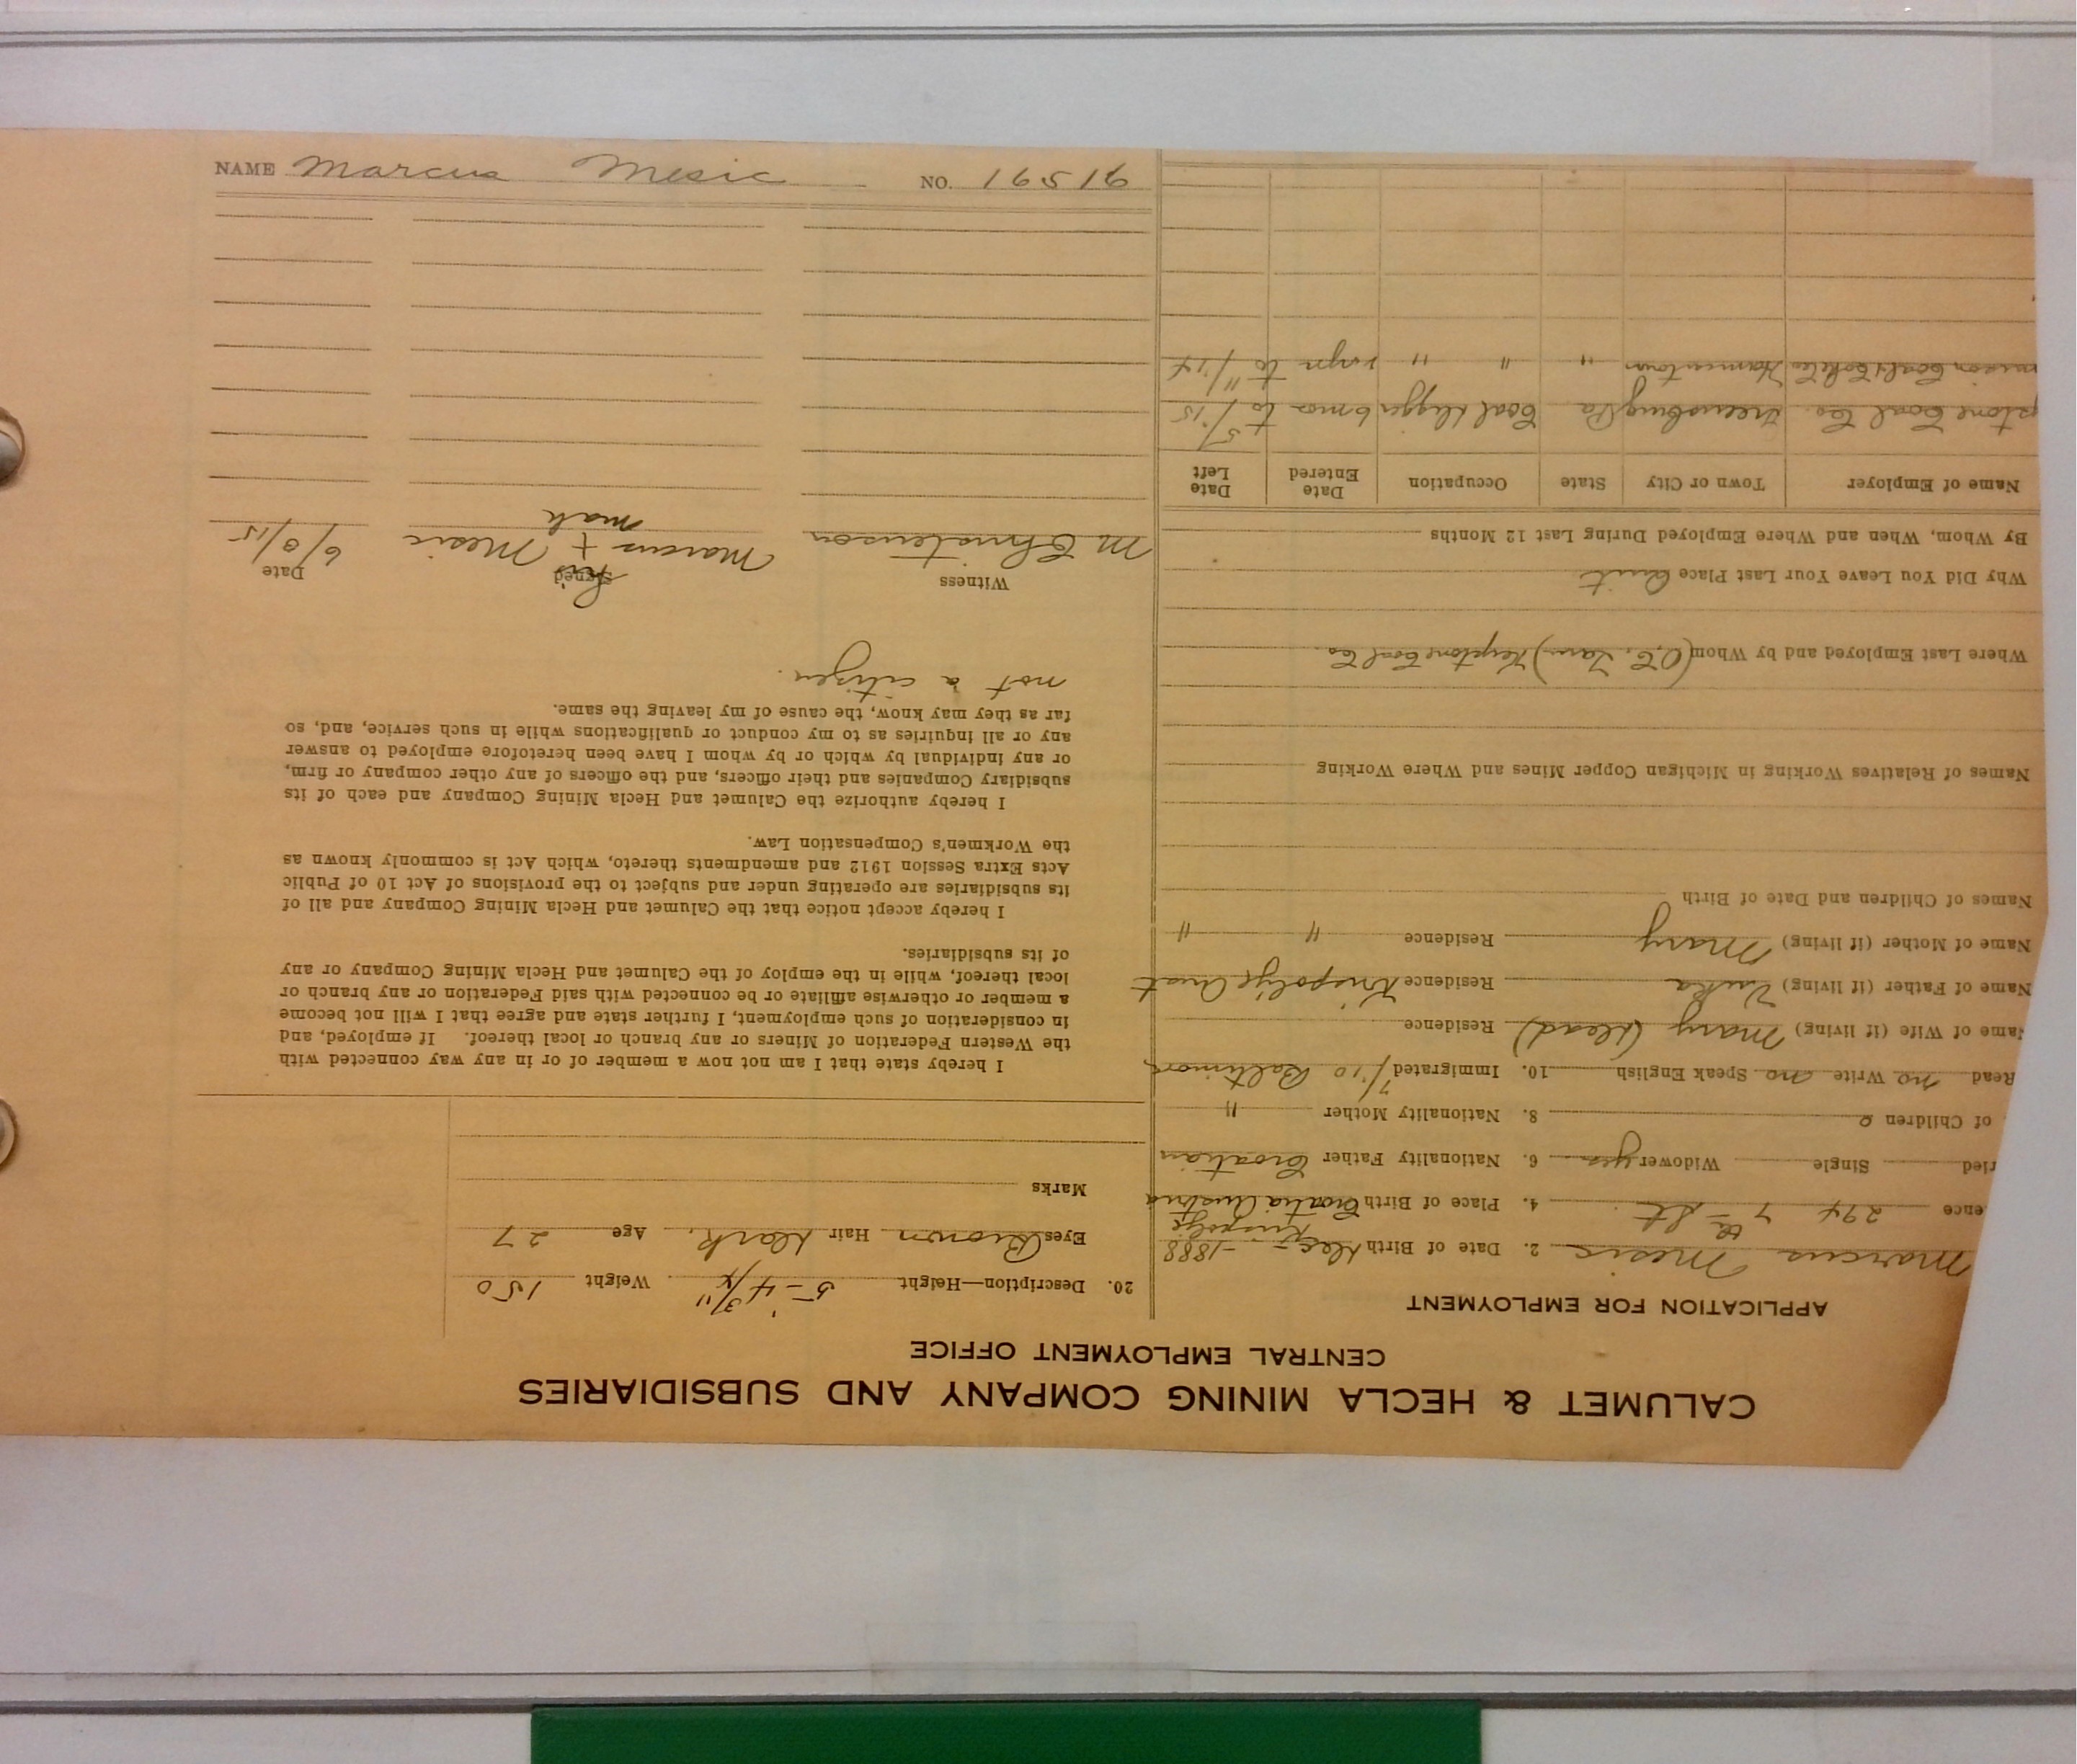 CALUMET & HECLA MINING COMPANY AND SUBSIDIARIES
CENTRAL EMPLOYMENT OFFICE
APPLICATION FOR EMPLOYMENT
Marcus Mesic 2. Date of Birth Dec - 1888
ence 294 7th St 4. Place of Birth Croatia Austria
ried Single Widower yes 6. Nationality Father Croatian
of Children 0 8. Nationality Mother "
Read no Write no Speak English 10. Immigrated 7/10 Baltimore
Name of Wife (if living) Mary (Dead) Residence
Name of Father (if living) Residence
Name of Mother (if living) Mary Residence " "
Names of Children and Date of Birth
Names of Relatives Working in Michigan Copper Mines and Where Working
Where Last Employed and by Whom Keystone Coal Co.
Why Did You Leave Your Last Place Quit
By Whom, When and Where Employed During Last 12 Months
Name of Employer Town or City State Occupation Date Entered Date Left
stone Coal Co. Greensburg Pa Coal digger 6 mos to 5/15
Coal & Coke Co " " " to 11/14
20. Description—Height 5'-4 3/4" Weight 150
Eyes Brown Hair Dark. Age 27
Marks
I hereby state that I am not now a member of or in any way connected with
the Western Federation of Miners or any branch or local thereof. If employed, and
in consideration of such employment, I further state and agree that I will not become
a member or otherwise affiliate or be connected with said Federation or any branch or
local thereof, while in the employ of the Calumet and Hecla Mining Company or any
of its subsidiaries.
I hereby accept notice that the Calumet and Hecla Mining Company and all of
its subsidiaries are operating under and subject to the provisions of Act 10 of Public
Acts Extra Session 1912 and amendments thereto, which Act is commonly known as
the Workmen's Compensation Law.
I hereby authorize the Calumet and Hecla Mining Company and each of its
subsidiary Companies and their officers, and the officers of any other company or firm,
or any individual by which or by whom I have been heretofore employed to answer
any or all inquiries as to my conduct or qualifications while in such service, and, so
far as they may know, the cause of my leaving the same.
not a citizen.
Witness Signed Date
his
M Christenson Marcus + Mesic 6/8/15
mark
NAME Marcus Mesic NO. 16516